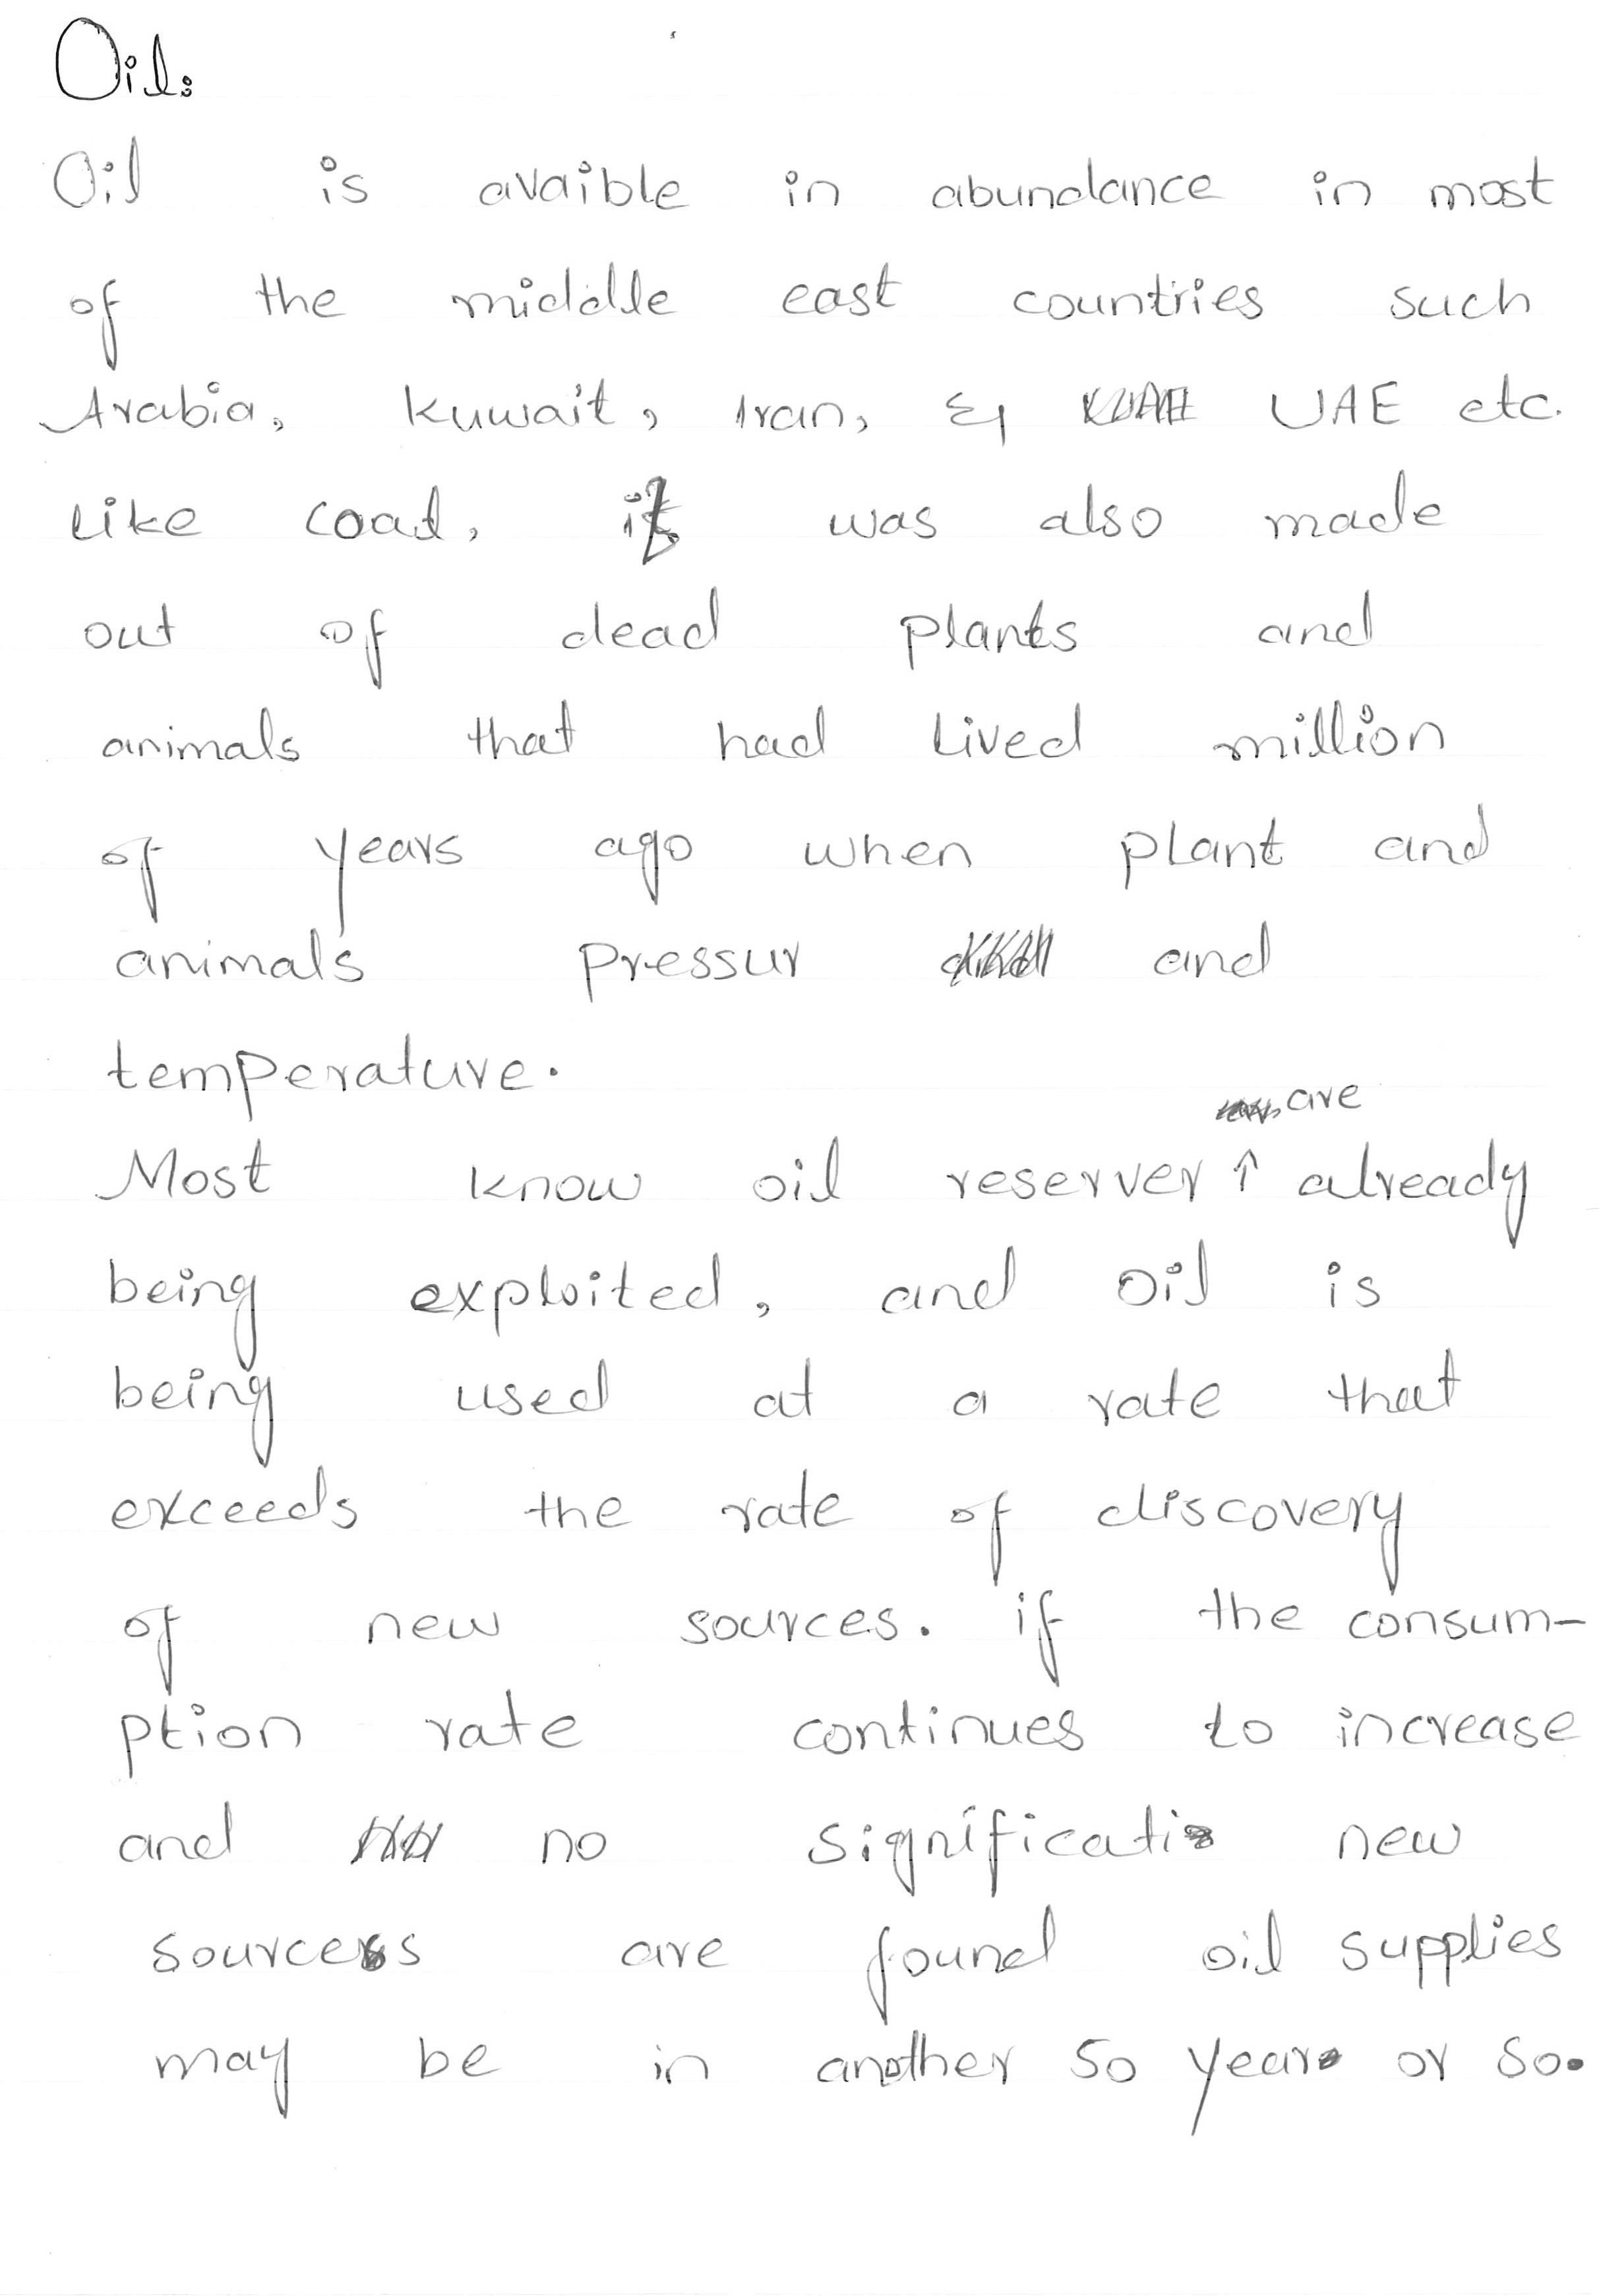 Oil:
Oil is avaible in abundance in most
of the middle east countries such
Arabia, Kuwait, Iran, & UAE etc.
Like coal, it was also made
out of dead plants and
animals that had lived million
of years ago when plant and
animals pressur and
temperature.
are
Most know oil reserver ↑ already
being exploited, and Oil is
being used at a rate that
exceeds the rate of discovery
of new sources. if the consum-
ption rate continues to increase
and no significati new
sources are found oil supplies
may be in another 50 years or so.